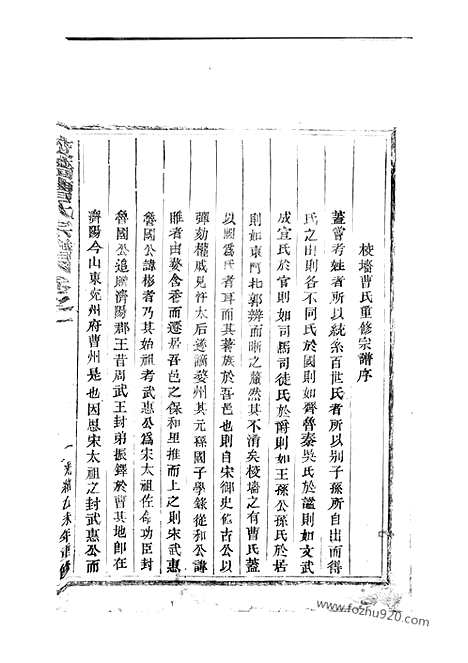 棱墻曹氏重修宗譜序
蓋嘗考姓者所以統系百世氏者所以别子孫所自出而得
氏之由則各不同氏於國則如齊魯秦吳氏於謚則如文武
成宣氏於官則如司馬司徒氏於爵則如王孫公孫氏於居
則如東門北郭辨而晰之釐然其不淆矣棱墻之有曹氏蓋
以國爲氏者耳而其著族於吾邑也則自宋御史脩古公以
彈劾權戚見忤太后遂謫婺州其元孫國子學錄從和公諱
睢者由婺舍巷而遷居吾邑之保和里推而上之則宋武惠
魯國公諱彬者乃其始祖考武惠公爲宋太祖佐命功臣封
魯國公追贈濟陽郡王昔周武王封弟振鐸於曹其地即在
濟陽今山東兖州府曹州是也因思宋太祖之封武惠公而
光緒 未年重修
www.fozhu920.com